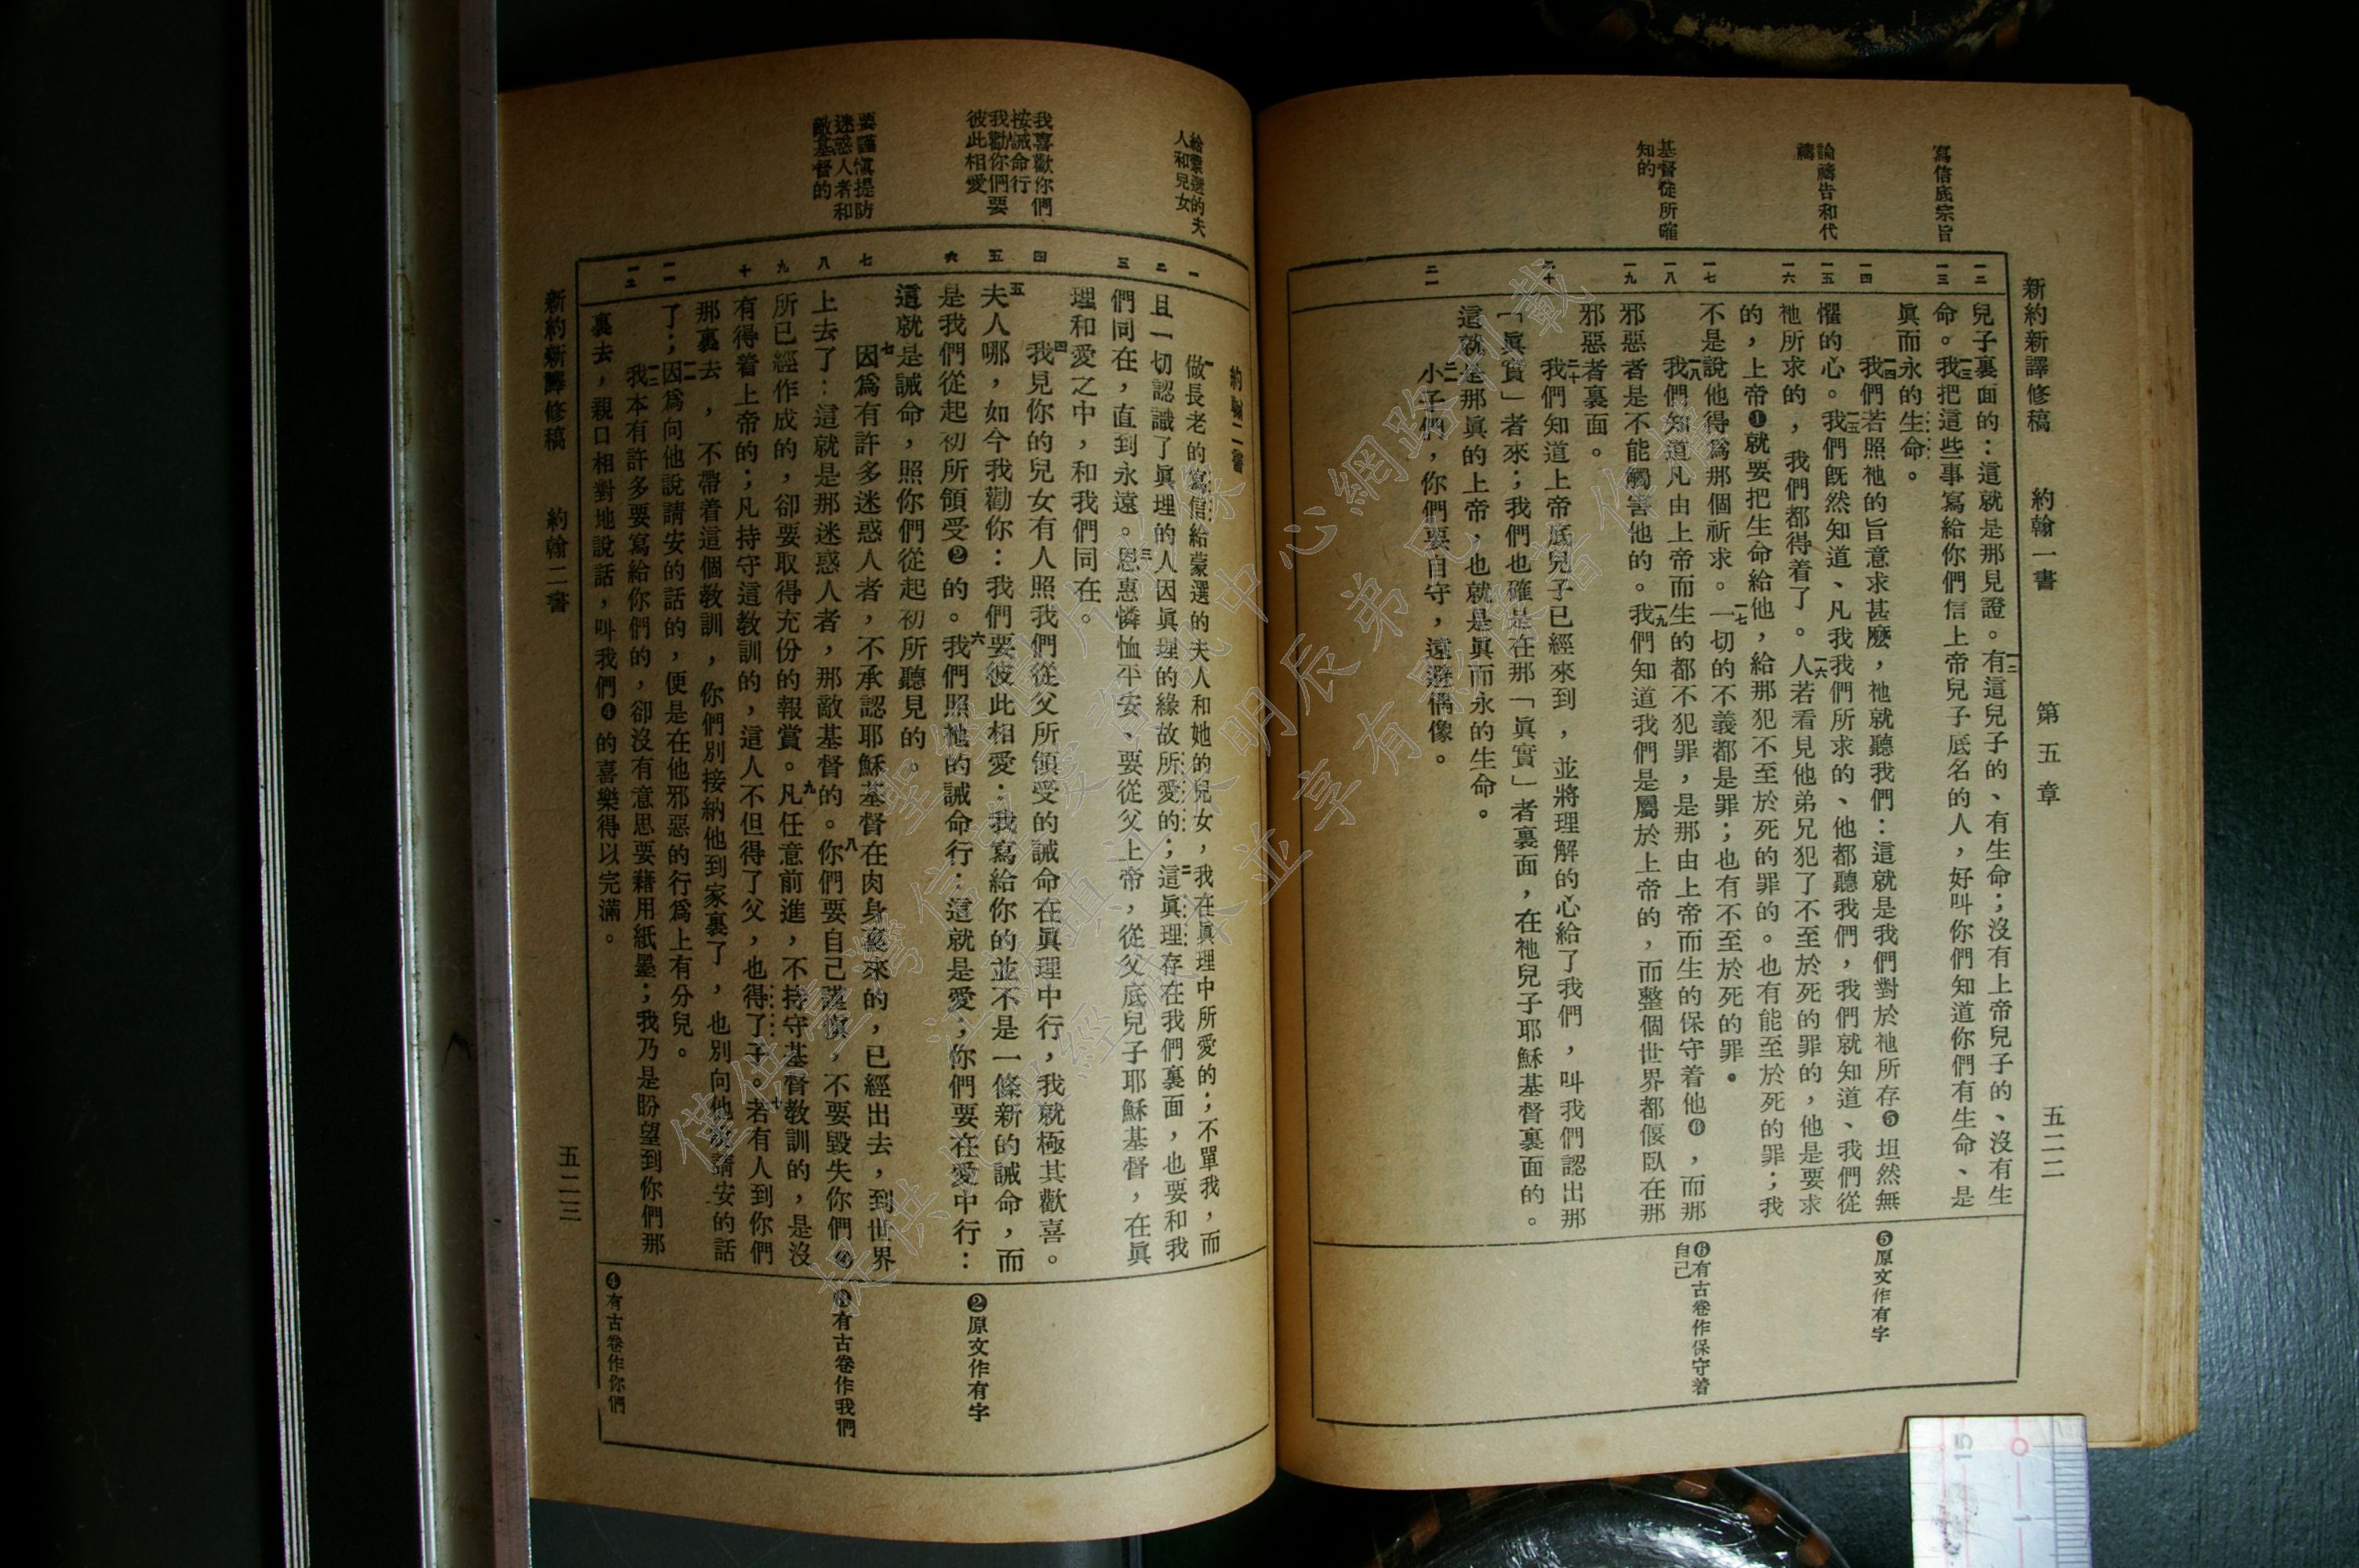 新約新譯修稿　約翰一書　第五章　五二二
寫信底宗旨
論禱告和代
禱
基督徒所確
知的
一二
一三
一四
一五
一六
一七
一八
一九
二十
二一
兒子裏面的：這就是那見證。一二有這兒子的、有生命；沒有上帝兒子的、沒有生
命。一三我把這些事寫給你們信上帝兒子底名的人，好叫你們知道你們有生命、是
眞而永的生命。
一四我們若照祂的旨意求甚麼，祂就聽我們：這就是我們對於祂所存❺坦然無
懼的心。一五我們旣然知道、凡我我們所求的、他都聽我們，我們就知道、我們從
祂所求的，我們都得着了。一六人若看見他弟兄犯了不至於死的罪的，他是要求
的，上帝❶就要把生命給他，給那犯不至於死的罪的。也有能至於死的罪；我
不是說他得爲那個祈求。一七一切的不義都是罪；也有不至於死的罪。
一八我們知道凡由上帝而生的都不犯罪，是那由上帝而生的保守着他❻，而那
邪惡者是不能觸害他的。一九我們知道我們是屬於上帝的，而整個世界都偃臥在那
邪惡者裏面。
二十我們知道上帝底兒子已經來到，並將理解的心給了我們，叫我們認出那
「眞實」者來；我們也確是在那「眞實」者裏面，在祂兒子耶穌基督裏面的。
這就是那眞的上帝，也就是眞而永的生命。
二一小子們，你們要自守，遠避偶像。
❺原文作有字
❻有古卷作保守着
自己
給蒙選的夫
人和兒女
我喜歡你們
按誡命行
我勸你們要
彼此相愛
要謹愼提防
迷惑人者和
敵基督的
一
二
三
四
五
六
七
八
九
十
一一
一二
約翰二書
一做長老的寫信給蒙選的夫人和她的兒女，我在眞理中所愛的；不單我，而
且一切認識了眞理的人因眞理的緣故所愛的；二這眞理存在我們裏面，也要和我
們同在，直到永遠。三恩惠憐恤平安、要從父上帝，從父底兒子耶穌基督，在眞
理和愛之中，和我們同在。
四我見你的兒女有人照我們從父所領受的誡命在眞理中行，我就極其歡喜。
五夫人哪，如今我勸你：我們要彼此相愛：我寫給你的並不是一條新的誡命，而
是我們從起初所領受❷的。六我們照祂的誡命行：這就是愛；你們要在愛中行：
這就是誡命，照你們從起初所聽見的。
七因爲有許多迷惑人者，不承認耶穌基督在肉身裏來的，已經出去，到世界
上去了：這就是那迷惑人者，那敵基督的。八你們要自己謹愼，不要毀失你們❸
所已經作成的，卻要取得充份的報賞。九凡任意前進，不持守基督教訓的，是沒
有得着上帝的；凡持守這教訓的，這人不但得了父，也得了子。十若有人到你們
那裏去，不帶着這個教訓，你們別接納他到家裏了，也別向他說請安的話
了；一一因爲向他說請安的話的，便是在他邪惡的行爲上有分兒。
一二我本有許多要寫給你們的，卻沒有意思要藉用紙墨；我乃是盼望到你們那
裏去，親口相對地說話，叫我們❹的喜樂得以完滿。
❷原文作有字
❸有古卷作我們
❹有古卷作你們
新約新譯修稿　約翰二書　五二三